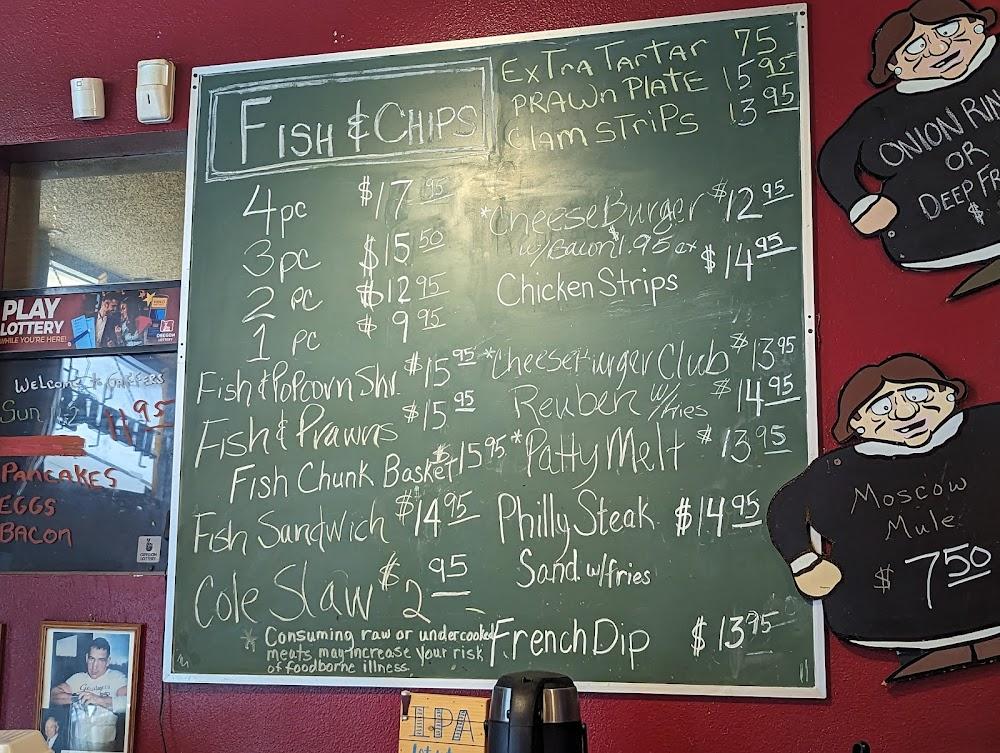 FISH & CHIPS
4pc $17.95
3pc $15.50
2 pc $12.95
1 pc $9.95
Fish & Popcorn Shr. $15.95
Fish & Prawns $15.95
Fish Chunk Basket $15.95
Fish Sandwich $14.95
Cole Slaw $2.95
* Consuming raw or undercooked
meats may increase your risk
of foodborne illness.
Extra Tartar 75
Prawn Plate 15.95
Clam Strips 13.95
*Cheese Burger $12.95
w/Bacon $1.95 ex
Chicken Strips $14.95
*Cheeseburger Club $13.95
Reuben w/fries $14.95
*Patty Melt $13.95
Philly Steak $14.95
Sand. w/fries
French Dip $13.95
PLAY
LOTTERY
WHILE YOU'RE HERE!
OREGON
LOTTERY
Welcome to
Sun
11.95
PANCAKES
EGGS
BACON
OREGON
LOTTERY
ONION RIN
OR
DEEP FR
$
Moscow
Mule
$7.50
IPA